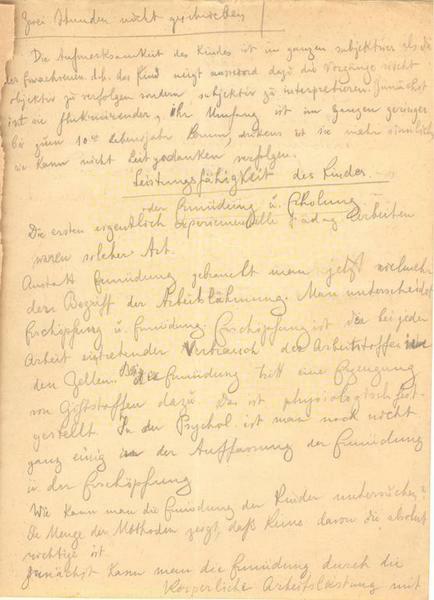 Zwei Stunden nicht geschrieben
Die Aufmerksamkeit des Kindes ist im ganzen subjektiver als die
der Erwachsenen d.h. das Kind neigt dazu die Vorgänge nicht
objektiv zu verfolgen sondern subjektiv zu interpretieren. Zunächst
ist sie fluktuierender, ihr Umfang ist im ganzen geringer
bis zum 10ten Lebensjahr kaum, ist sie mehr sinnlich,
sie kann nicht Leitgedanken verfolgen.
Leistungsfähigkeit des Kindes.
oder Ermüdung u. Erholung
Die ersten eigentlich experimentelle pädag Arbeiten
waren solcher Art.
Anstatt Ermüdung gebraucht man jetzt vielmehr
den Begriff der Arbeitslähmung. Man unterscheidet
Erschöpfung u. Ermüdung. Erschöpfung ist der bei jeder
Arbeit eintretender Verbrauch des Arbeitsstoffes in
den Zellen. Bei Ermüdung tritt eine Erzeugung
von Giftstoffen dazu. Das ist physiologisch fest-
gestellt. In der Psychol. ist man noch nicht
ganz einig in der Auffassung der Ermüdung
u. der Erschöpfung
Wie kann man die Ermüdung der Kinder untersuchen?
Die Menge der Methoden zeigt, daß keine davon die absolut
richtige ist.
Zunächst kann man die Ermüdung durch die
Körperliche Arbeitsleistung mit